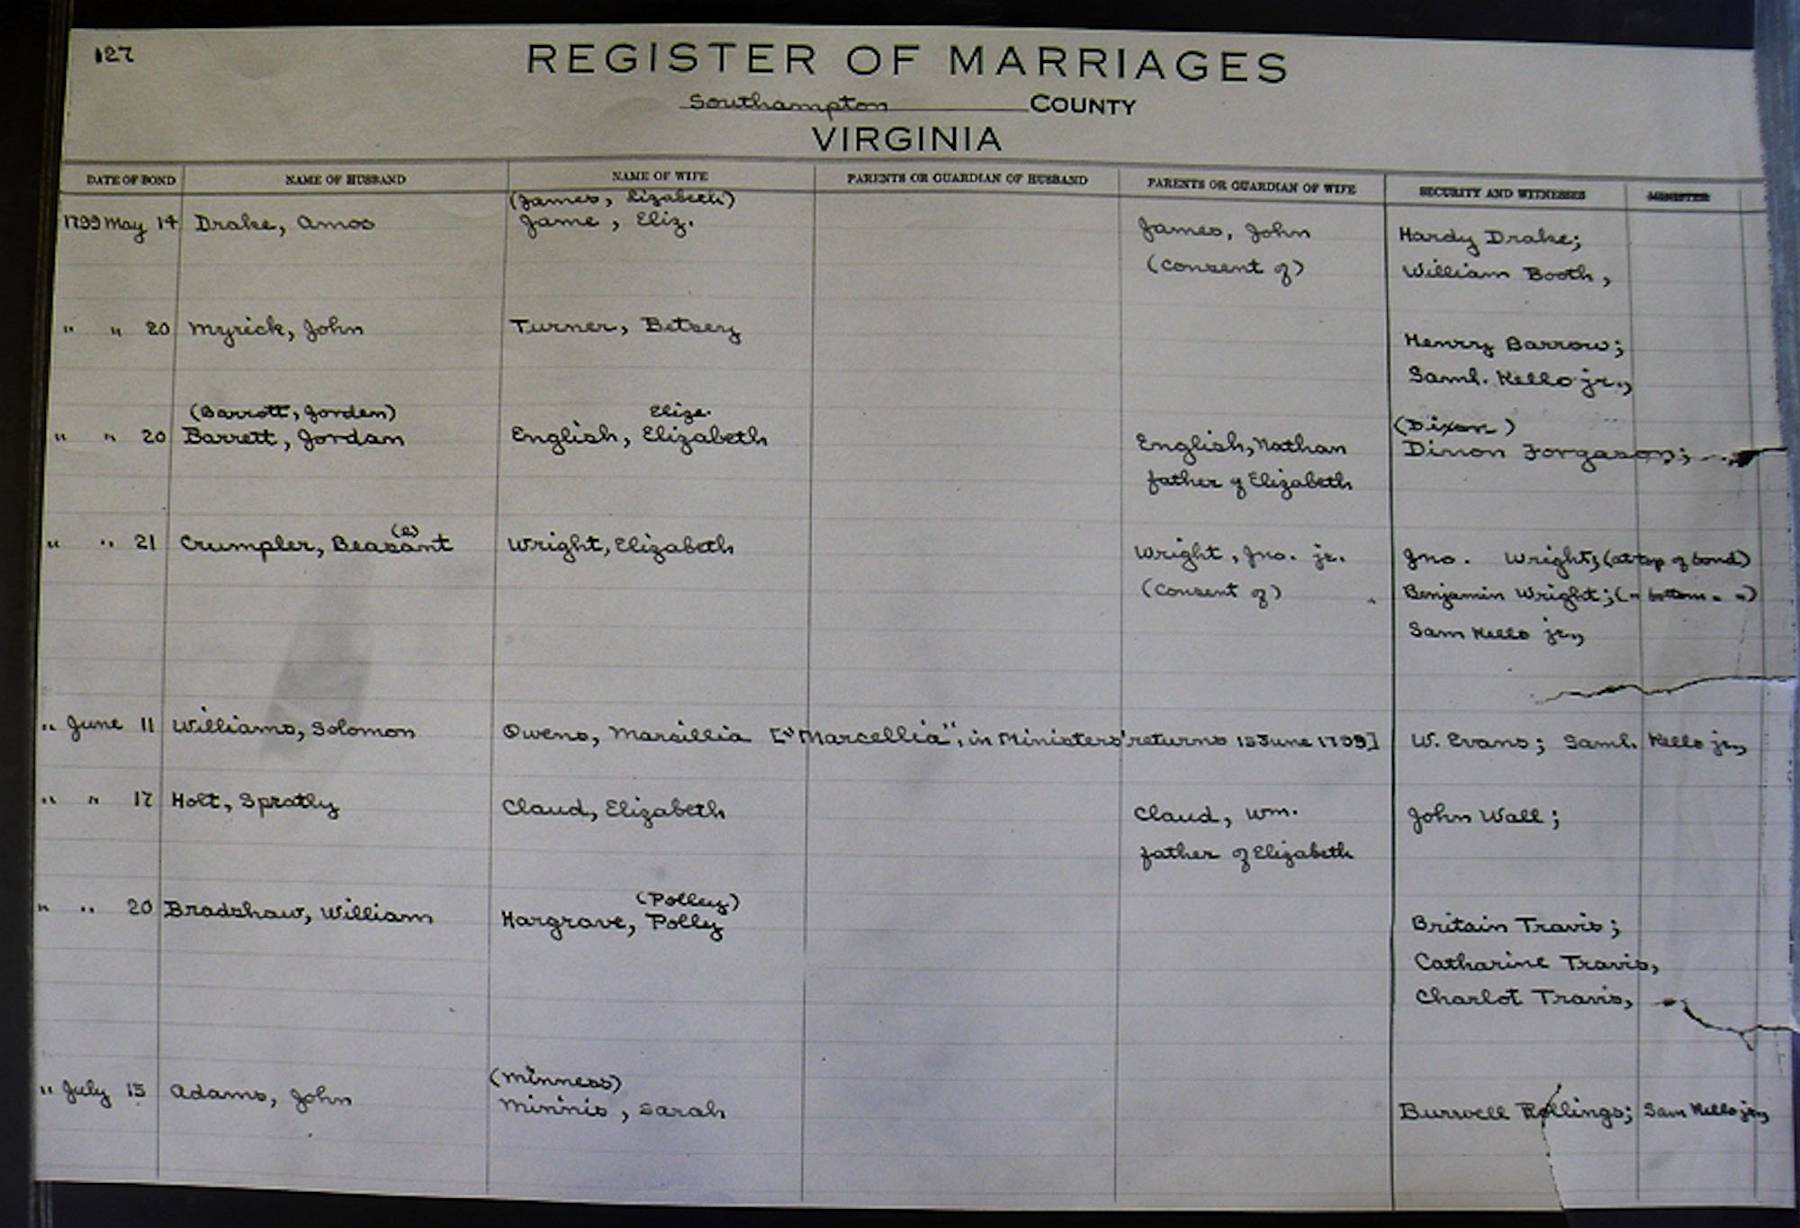 127
REGISTER OF MARRIAGES
Southampton COUNTY
VIRGINIA
DATE OF BOND NAME OF HUSBAND NAME OF WIFE PARENTS OR GUARDIAN OF HUSBAND PARENTS OR GUARDIAN OF WIFE SECURITY AND WITNESSES MINISTER
(James, Lizabeth)
1799 May 14 Drake, Amos Jame, Eliz. James, John Hardy Drake;
(Consent of) William Booth,
" " 20 Myrick, John Turner, Betsey Henry Barrow;
Saml. Kello jr.,
(Barrott, Jorden) Eliza. (Dixon)
" " 20 Barrett, Jordan English, Elizabeth English, Nathan Dinon Forgason;
father of Elizabeth
(e)
" " 21 Crumpler, Beasant Wright, Elizabeth Wright, Jno. jr. Jno. Wright; (at top of bond)
(Consent of) Benjamin Wright; (" bottom " ")
Sam Kello jr.,
" June 11 Williams, Solomon Owens, Marsillia ["Marcellia", in Ministers' returns 13 June 1799] W. Evans; Saml. Kello jr.,
" " 17 Holt, Spratly Claud, Elizabeth Claud, Wm. John Wall;
father of Elizabeth
(Polley)
" " 20 Bradshaw, William Hargrave, Polly Britain Travis;
Catharine Travis,
Charlot Travis,
(Minness)
" July 15 Adams, John Minnis, Sarah Burwell Rollings; Sam Kello jr.,